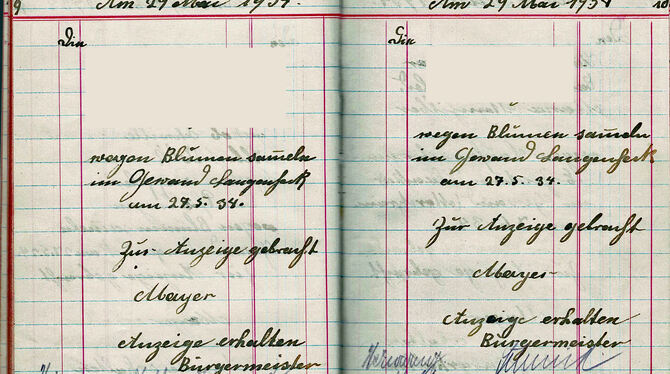 9
Am 29 Mai 1934.
Die
wegen Blumen sameln
im Gewand Langenfeck
am 27.5. 34.
Zur Anzeige gebracht
Mayer
Anzeige erhalten
Bürgermeister
Am 29 Mai 1934
10
Die
wegen Blumen sameln
im Gewand Langenfeck
am 27.5. 34.
Zur Anzeige gebracht
Mayer
Anzeige erhalten
Bürgermeister